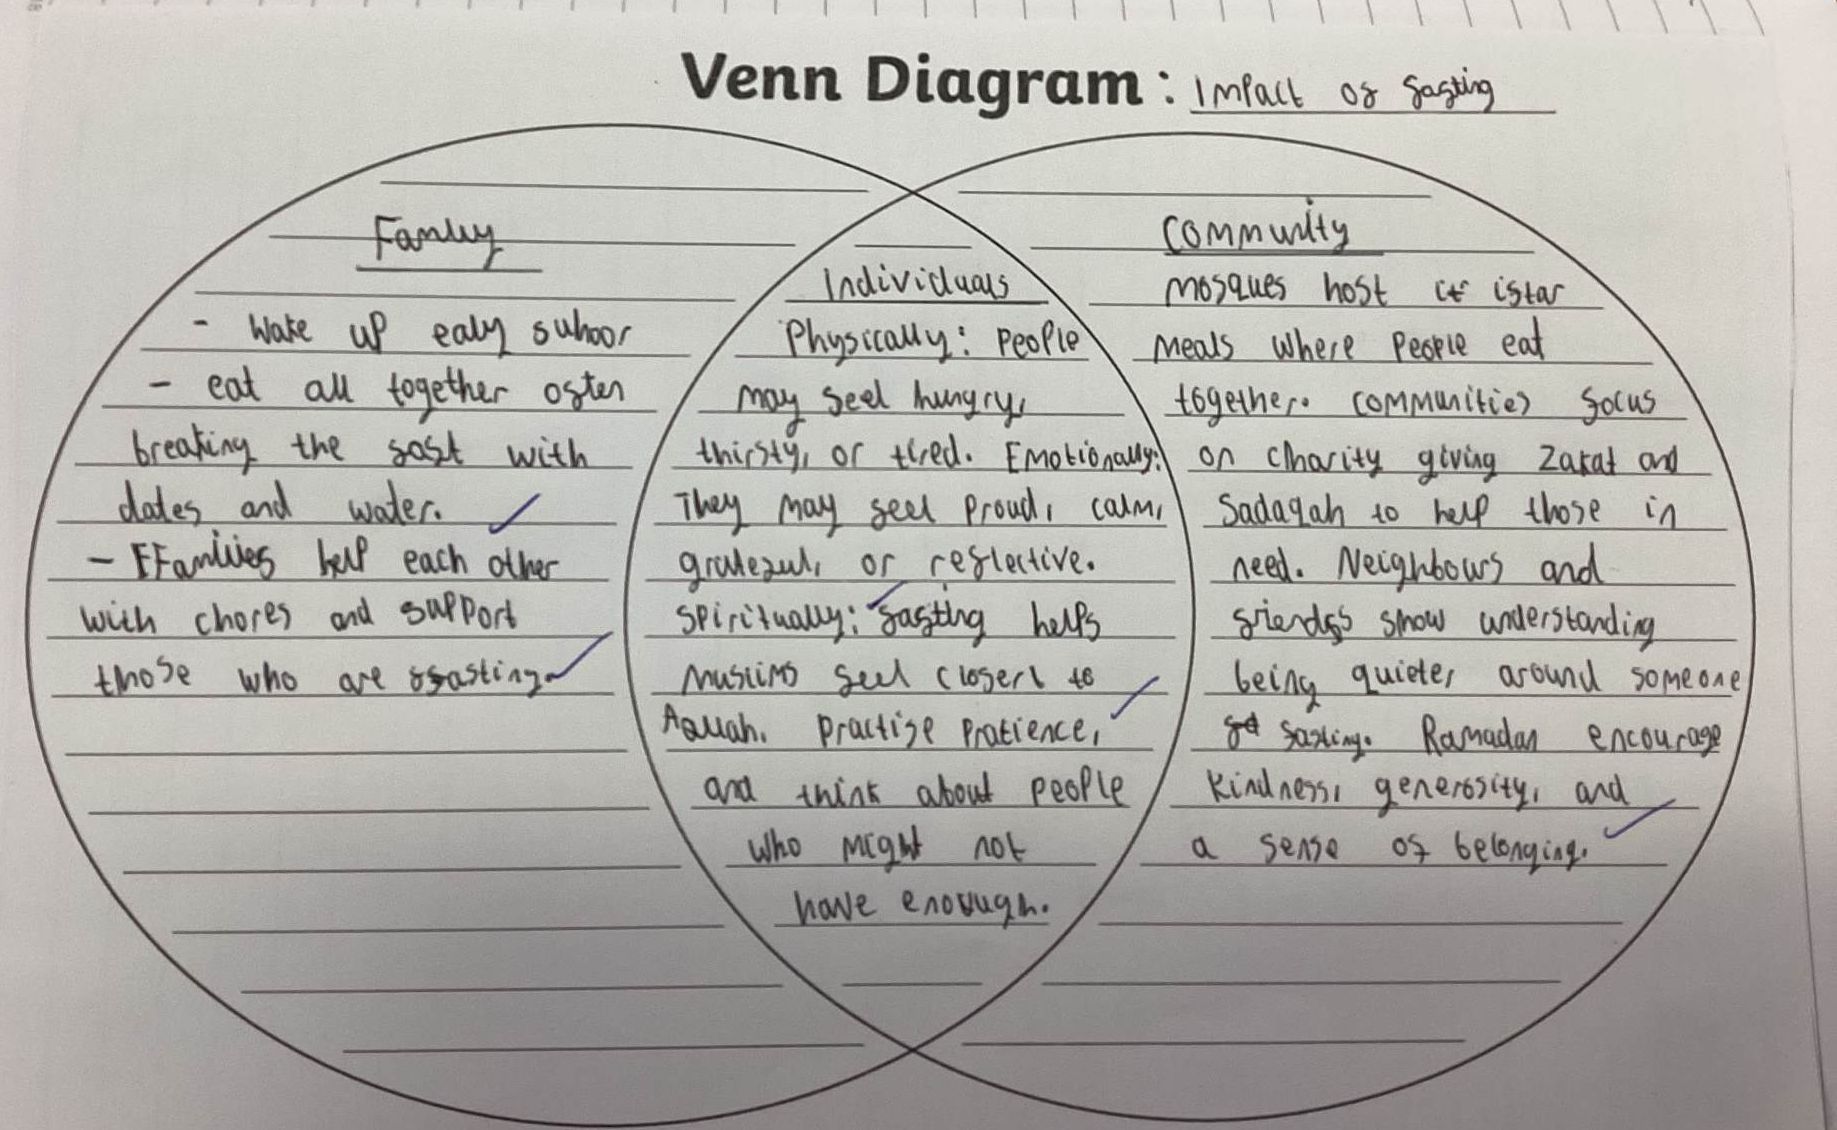 Venn Diagram : Impact of fasting
Family
- Wake up ealy suhoor
- eat all together often
breaking the fast with
dates and water.
- Families help each other
with chores and support
those who are fasting.
Individuals
Physically: People
may feel hungry,
thirsty, or tired. Emotionally:
They may feel proud, calm,
grateful, or reflective.
Spiritually: fasting helps
Muslims feel closer to
Allah. Practise Pratience,
and think about people
who might not
have enough.
Community
mosques host iftar
meals where people eat
together. Communities focus
on charity giving Zakat and
Sadaqah to help those in
need. Neighbours and
friends show understanding
being quieter around someone
fasting. Ramadan encourage
kindness, generosity, and
a sense of belonging.